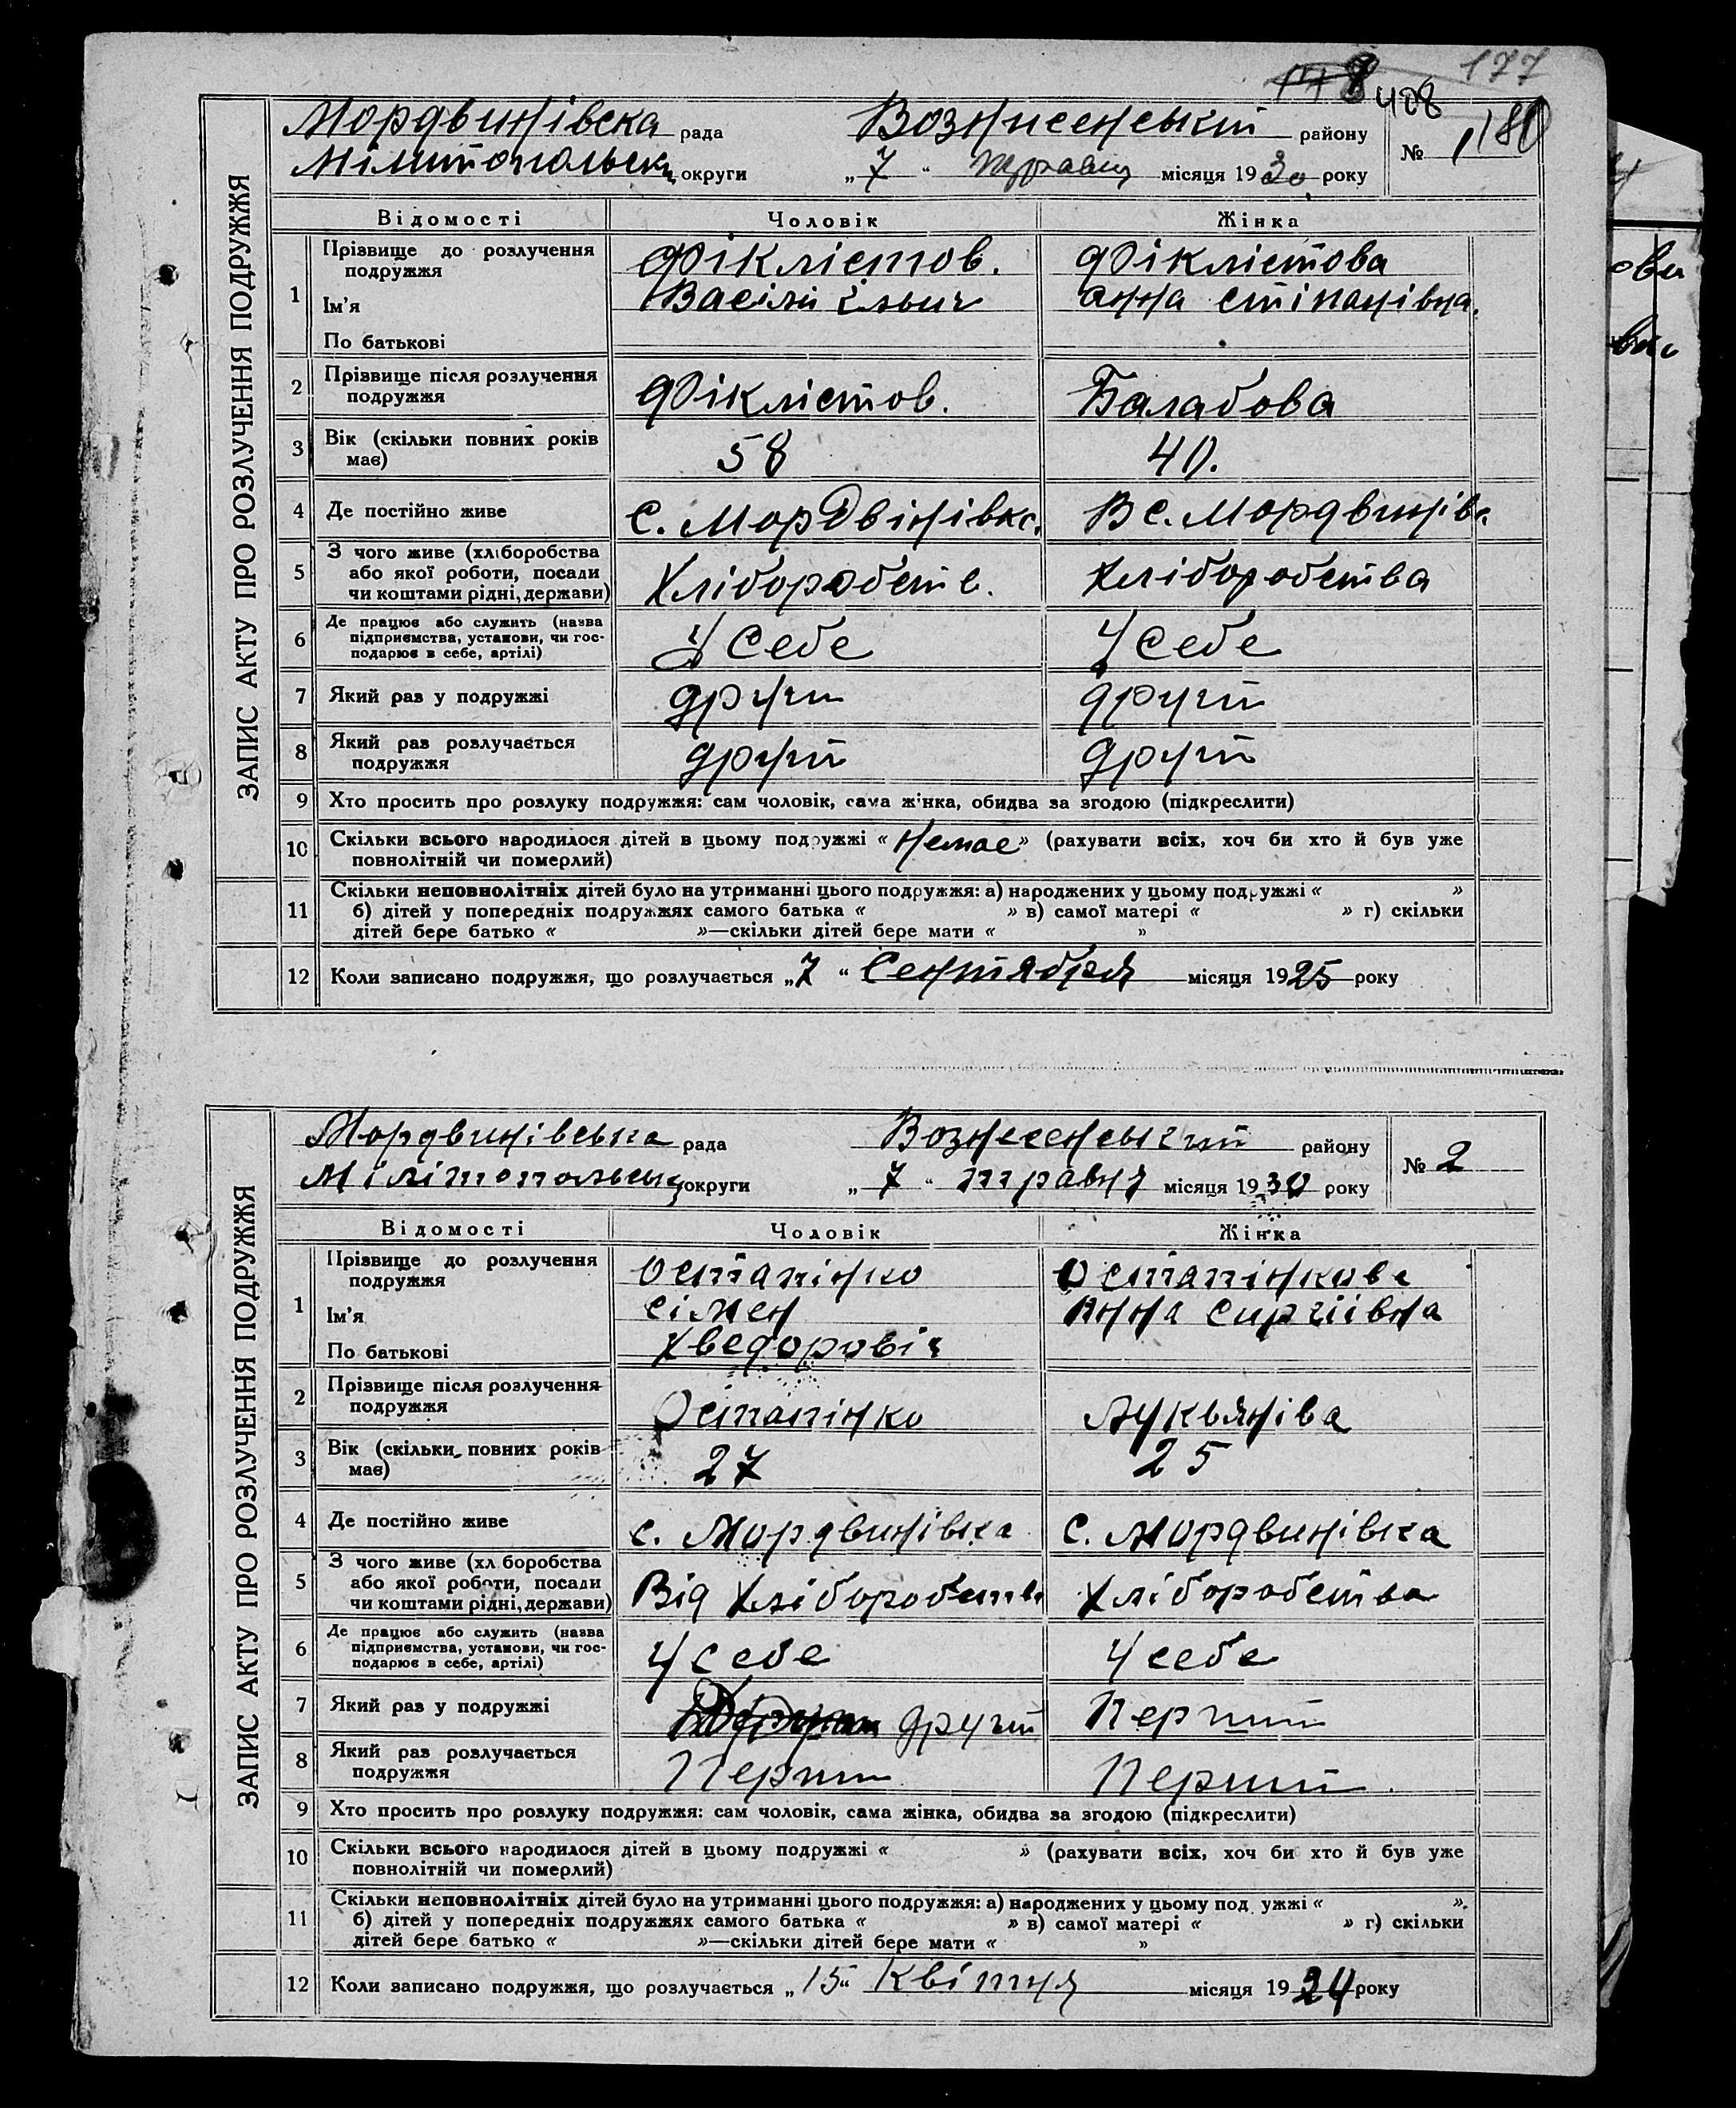 177
408
ЗАПИС АКТУ ПРО РОЗЛУЧЕННЯ ПОДРУЖЖЯ
Мордвинівска рада Вознисенський району № 1 180
округи „7“ травня місяця 1930 року
Відомості Чоловік Жінка
1 Прізвище до розлучення подружжя Фіклістов. Фіклістова
Ім'я Васілй Ільич Анна Стіпанівна.
По батькові
2 Прізвище після розлучення подружжя Фіклістов. Балабова
3 Вік (скільки повних років має) 58 40.
4 Де постійно живе с. Мордвінівкс. В с. Мордвинівс.
5 З чого живе (хліборобства або якої роботи, посади чи коштами рідні, держави) Хліборобств. Хліборобства
6 Де працює або служить (назва підприємства, установи, чи господарює в себе, артілі) У Себе У Себе
7 Який раз у подружжі други другий
8 Який раз розлучається подружжя другий другий
9 Хто просить про розлуку подружжя: сам чоловік, сама жінка, обидва за згодою (підкреслити)
10 Скільки всього народилося дітей в цьому подружжі «Немає» (рахувати всіх, хоч би хто й був уже
повнолітній чи померлий)
11 Скільки неповнолітніх дітей було на утриманні цього подружжя: а) народжених у цьому подружжі « »
б) дітей у попередніх подружжях самого батька « » в) самої матері « » г) скільки
дітей бере батько « »—скільки дітей бере мати « »
12 Коли записано подружжя, що розлучається „7“ Сентября місяця 1925 року
ЗАПИС АКТУ ПРО РОЗЛУЧЕННЯ ПОДРУЖЖЯ
Мордвинівська рада Вознесенський району № 2
округи „7“ травня місяця 1930 року
Відомості Чоловік Жінка
1 Прізвище до розлучення подружжя Остапінко Остапінкова
Ім'я Сімен Анна Сиргіівна
По батькові Хведоровіч
2 Прізвище після розлучення подружжя Остапінко Лукьяніва
3 Вік (скільки повних років має) 27 25
4 Де постійно живе с. Мордвинівка с. Мордвинівка
5 З чого живе (хл боробства або якої роботи, посади чи коштами рідні, держави) Від Хліборобств Хліборобства
6 Де працює або служить (назва підприємства, установи, чи господарює в себе, артілі) У себе У себе
7 Який раз у подружжі другий Перший
8 Який раз розлучається подружжя Перши Перший.
9 Хто просить про розлуку подружжя: сам чоловік, сама жінка, обидва за згодою (підкреслити)
10 Скільки всього народилося дітей в цьому подружжі « » (рахувати всіх, хоч би хто й був уже
повнолітній чи померлий)
11 Скільки неповнолітніх дітей було на утриманні цього подружжя: а) народжених у цьому под ужжі « ».
б) дітей у попередніх подружжях самого батька « » в) самої матері « » г) скільки
дітей бере батько « »—скільки дітей бере мати « »
12 Коли записано подружжя, що розлучається „15“ Квітня місяця 1924 року